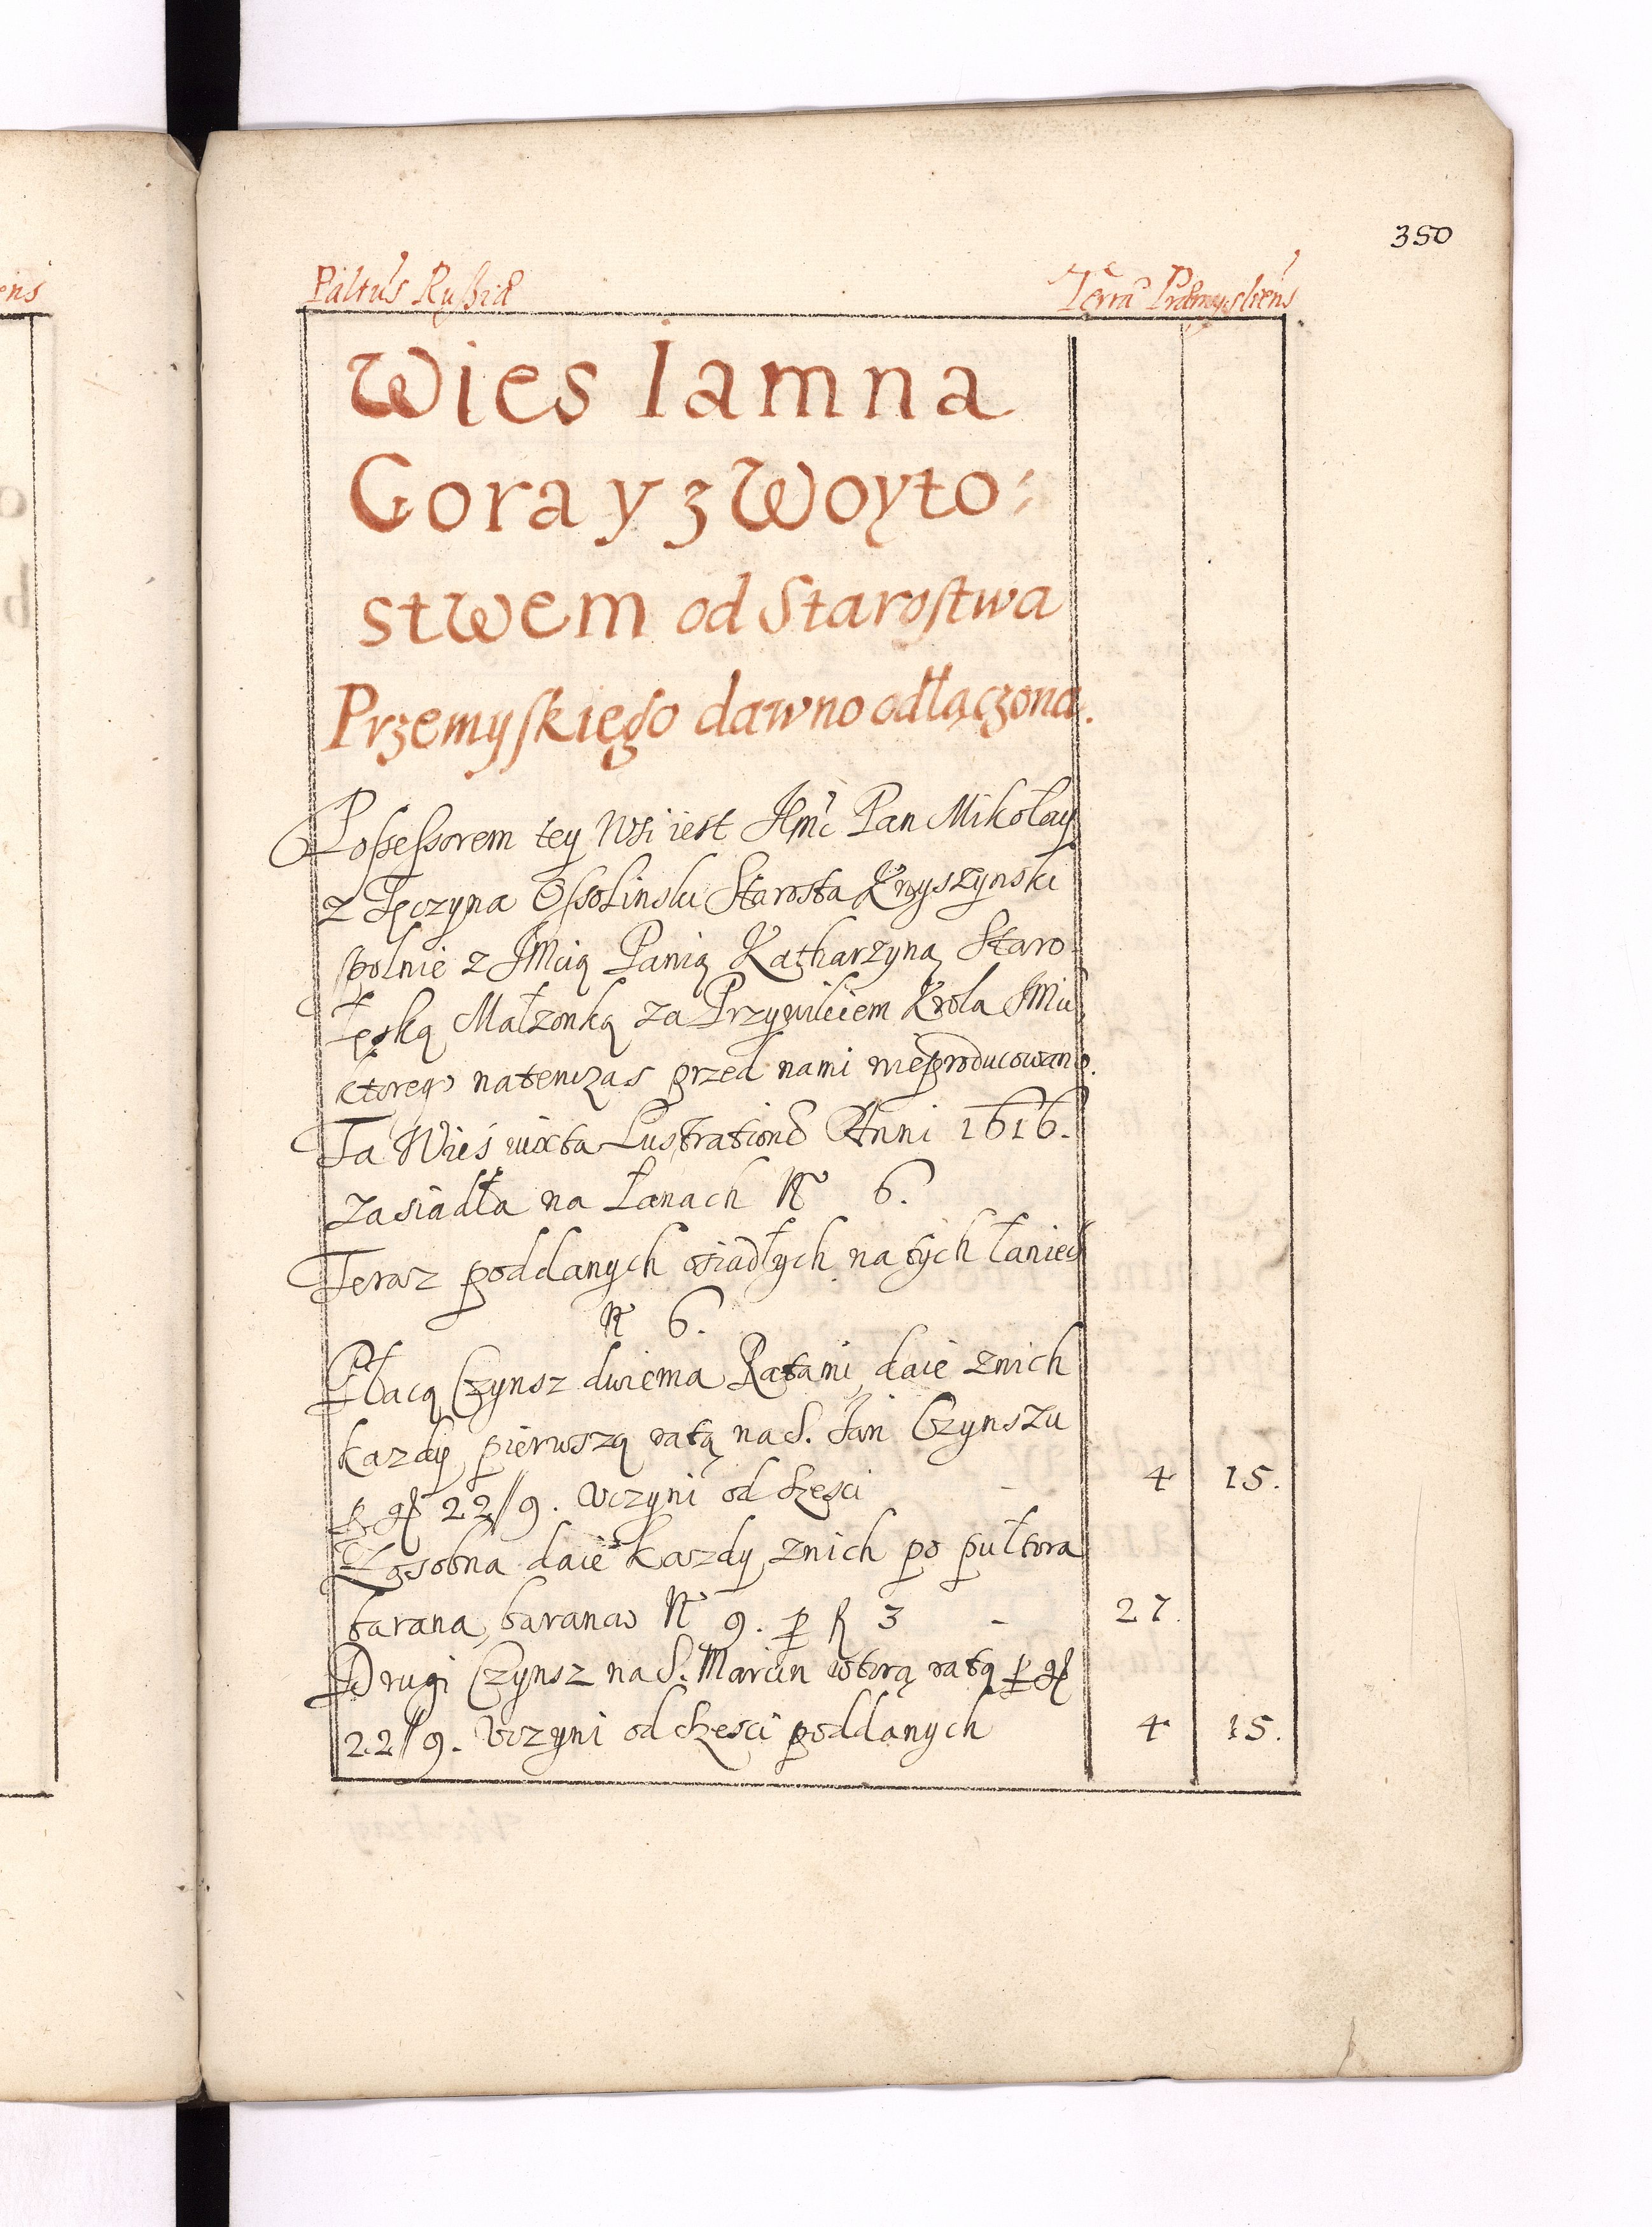 350
Paltus Rußiæ Terra Præmysliens
Wies Iamna
Gora y z Woyto:
stwem od Starostwa
Przemyskiego dawno odłączona.
Possessorem tey Wsi iest JEmć Pan Mikołay
z Tęczyna Ossolinski Starosta Knyszynski
spolnie z JMcią Panią Katharzyną Staro-
łęską Małzonką za Przywileiem Krola JMci
ktorego natenczas przed nami nieproducowano.
Ta Wieś iuxta Lustrationē Anni 1616.
zasiadła na Łanach Nº 6.
Teraz poddanych osiadłych na tych łaniech
Nº 6.
Płacą Czynsz dwiema Ratami, daie znich
kazdy pierwszą ratą na S. Jan Czynszu
p gr 22//9. Uczyni od szesci - 4 15.
Zosobna daie kazdy znich po pułtora
barana, baranow Nº 9. p fl 3 - 27.
Drugi Czynsz na S. Marcin wtorą ratą p gr
22//9. Uczyni od szesci poddanych 4 15.